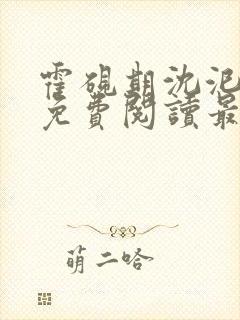 霍硯期沈泥
免費閱讀最
萌二哈